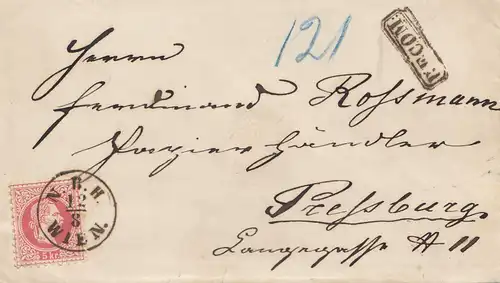 121
F. ECOM.
Herrn
Ferdinand Rossmann
Papier händler
Pressburg
Langegasse # 11
N. B. H.
12
8
WIEN.
5 kr